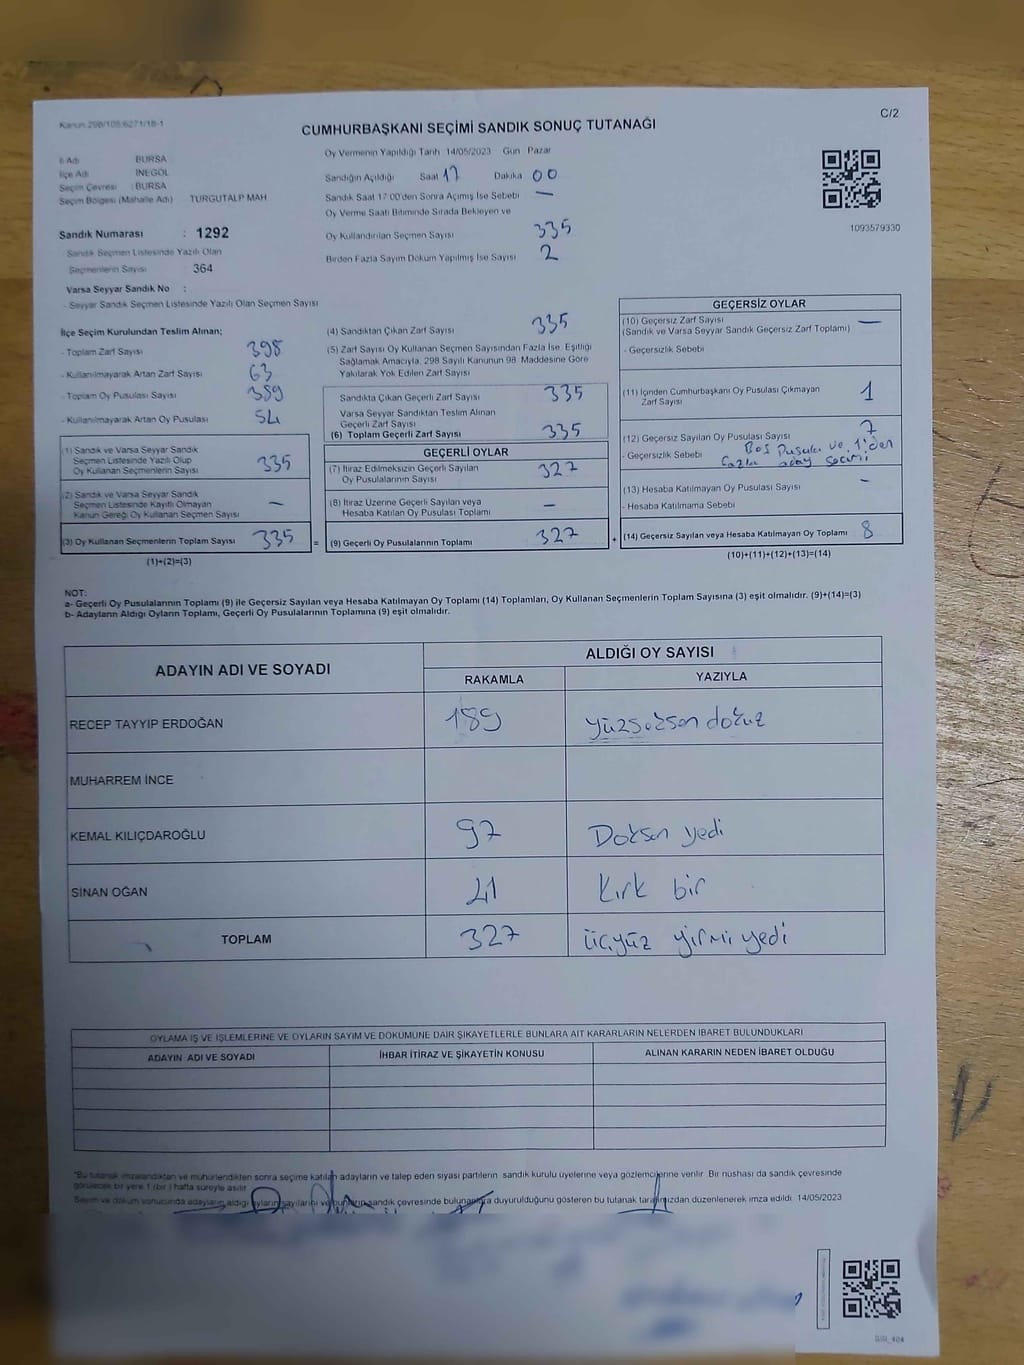 Kanun 298/105:6271/18-1
C/2
CUMHURBAŞKANI SEÇİMİ SANDIK SONUÇ TUTANAĞI
İl Adı BURSA
İlçe Adı INEGÖL
Seçim Çevresi : BURSA
Seçim Bölgesi (Mahalle Adı) TURGUTALP MAH
Sandık Numarası : 1292
- Sandık Seçmen Listesinde Yazılı Olan
Seçmenlerin Sayısı 364
Varsa Seyyar Sandık No :
- Seyyar Sandık Seçmen Listesinde Yazılı Olan Seçmen Sayısı
Oy Vermenin Yapıldığı Tarih 14/05/2023 Gün Pazar
Sandığın Açıldığı Saat 17 Dakika 00
Sandık Saat 17:00'den Sonra Açımış İse Sebebi —
Oy Verme Saati Bitiminde Sırada Bekleyen ve
Oy Kullandırılan Seçmen Sayısı 335
Birden Fazla Sayım Döküm Yapılmış İse Sayısı 2
1093579330
İlçe Seçim Kurulundan Teslim Alınan;
- Toplam Zarf Sayısı 398
- Kullanılmayarak Artan Zarf Sayısı 63
- Toplam Oy Pusulası Sayısı 389
- Kullanılmayarak Artan Oy Pusulası 54
(1) Sandık ve Varsa Seyyar Sandık
Seçmen Listesinde Yazılı Olup
Oy Kullanan Seçmenlerin Sayısı 335
(2) Sandık ve Varsa Seyyar Sandık
Seçmen Listesinde Kayıtlı Olmayan
Kanun Gereği Oy Kullanan Seçmen Sayısı —
(3) Oy Kullanan Seçmenlerin Toplam Sayısı 335 =
(1)+(2)=(3)
(4) Sandıktan Çıkan Zarf Sayısı 335
(5) Zarf Sayısı Oy Kullanan Seçmen Sayısından Fazla İse, Eşitliği
Sağlamak Amacıyla, 298 Sayılı Kanunun 98. Maddesine Göre
Yakılarak Yok Edilen Zarf Sayısı
Sandıkta Çıkan Geçerli Zarf Sayısı 335
Varsa Seyyar Sandıktan Teslim Alınan
Geçerli Zarf Sayısı
(6) Toplam Geçerli Zarf Sayısı 335
GEÇERLİ OYLAR
(7) İtiraz Edilmeksizin Geçerli Sayılan
Oy Pusulalarının Sayısı 327
(8) İtiraz Üzerine Geçerli Sayılan veya
Hesaba Katılan Oy Pusulası Toplamı —
(9) Geçerli Oy Pusulalarının Toplamı 327 +
GEÇERSİZ OYLAR
(10) Geçersiz Zarf Sayısı —
(Sandık ve Varsa Seyyar Sandık Geçersiz Zarf Toplamı)
- Geçersizlik Sebebi
(11) İçinden Cumhurbaşkanı Oy Pusulası Çıkmayan
Zarf Sayısı 1
(12) Geçersiz Sayılan Oy Pusulası Sayısı 7
- Geçersizlik Sebebi Boş Pusula ve 1'den
fazla aday seçimi
(13) Hesaba Katılmayan Oy Pusulası Sayısı —
- Hesaba Katılmama Sebebi
(14) Geçersiz Sayılan veya Hesaba Katılmayan Oy Toplamı 8
(10)+(11)+(12)+(13)=(14)
NOT:
a- Geçerli Oy Pusulalarının Toplamı (9) ile Geçersiz Sayılan veya Hesaba Katılmayan Oy Toplamı (14) Toplamları, Oy Kullanan Seçmenlerin Toplam Sayısına (3) eşit olmalıdır. (9)+(14)=(3)
b- Adayların Aldığı Oyların Toplamı, Geçerli Oy Pusulalarının Toplamına (9) eşit olmalıdır.
ADAYIN ADI VE SOYADI ALDIĞI OY SAYISI
RAKAMLA YAZIYLA
RECEP TAYYIP ERDOĞAN 189 yüzseksen dokuz
MUHARREM İNCE
KEMAL KILIÇDAROĞLU 97 Doksan yedi
SİNAN OĞAN 41 Kırk bir
TOPLAM 327 üçyüz yirmi yedi
OYLAMA İŞ VE İŞLEMLERİNE VE OYLARIN SAYIM VE DÖKÜMÜNE DAİR ŞİKAYETLERLE BUNLARA AİT KARARLARIN NELERDEN İBARET BULUNDUKLARI
ADAYIN ADI VE SOYADI İHBAR İTİRAZ VE ŞİKAYETİN KONUSU ALINAN KARARIN NEDEN İBARET OLDUĞU
*Bu tutanak imzalandıktan ve mühürlendikten sonra seçime katılan adayların ve talep eden siyasi partilerin sandık kurulu üyelerine veya gözlemcilerine verilir. Bir nüshası da sandık çevresinde
görülecek bir yere 1 (bir) hafta süreyle asılır
Sayım ve döküm sonucunda adayların aldığı oyların sayılarını ve bunların sandık çevresinde bulunanlara duyurulduğunu gösteren bu tutanak tarafımızdan düzenlenerek imza edildi. 14/05/2023